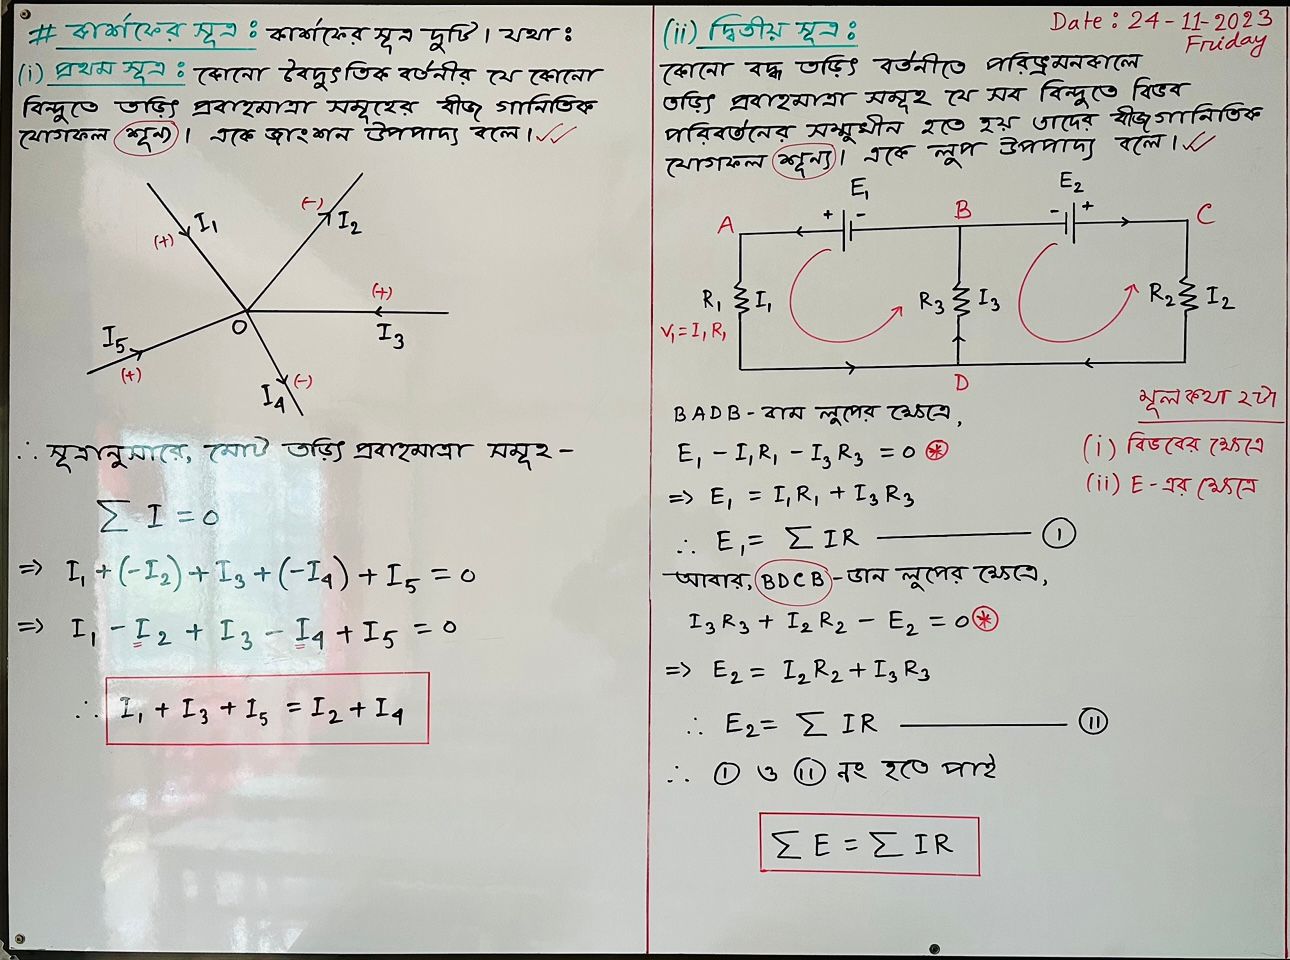 # কার্শফের সূত্র : কার্শফের সূত্র দুটি। যথা :
(i) প্রথম সূত্র : কোনো বৈদ্যুতিক বর্তনীর যে কোনো
বিন্দুতে তড়িৎ প্রবাহমাত্রা সমূহের বীজ গানিতিক
যোগফল শূন্য। একে জাংশন উপপাদ্য বলে।
I₁
(+)
(-)
I₂
(+)
I₃
O
I₅
(+)
I₄
(-)
∴ সূত্রানুসারে, মোট তড়িৎ প্রবাহমাত্রা সমূহ -
∑ I = 0
=> I₁ + (-I₂) + I₃ + (-I₄) + I₅ = 0
=> I₁ - I₂ + I₃ - I₄ + I₅ = 0
∴ I₁ + I₃ + I₅ = I₂ + I₄
Date : 24-11-2023
Friday
(ii) দ্বিতীয় সূত্র :
কোনো বদ্ধ তড়িৎ বর্তনীতে পরিভ্রমনকালে
তড়িৎ প্রবাহমাত্রা সমূহ যে সব বিন্দুতে বিভব
পরিবর্তনের সম্মুখীন হতে হয় তাদের বীজগানিতিক
যোগফল শূন্য। একে লুপ উপপাদ্য বলে।
E₁
E₂
A
+ -
B
- +
C
R₁ I₁
R₃ I₃
R₂ I₂
V₁ = I₁R₁
D
BADB - বাম লুপের ক্ষেত্রে,
মূলকথা ২টা
(i) বিভবের ক্ষেত্রে
(ii) E - এর ক্ষেত্রে
E₁ - I₁R₁ - I₃R₃ = 0 *
=> E₁ = I₁R₁ + I₃R₃
∴ E₁ = ∑ IR ——— I
আবার, BDCB - ডান লুপের ক্ষেত্রে,
I₃R₃ + I₂R₂ - E₂ = 0 *
=> E₂ = I₂R₂ + I₃R₃
∴ E₂ = ∑ IR ——— II
∴ I ও II নং হতে পাই
∑ E = ∑ IR